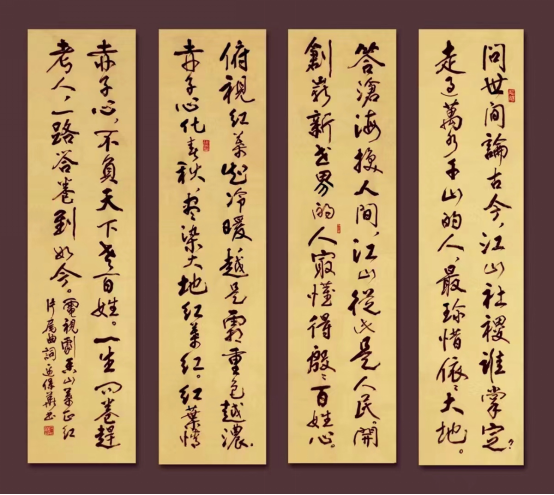 问世间論古今,江山社稷谁掌定?
走過萬水千山的人,最珍惜依依大地。
答滄海换人间,江山從此是人民。開
創嶄新世界的人最懂得殷殷百姓心。
俯視紅葉知冷暖越是霜重色越濃。
赤子心化春秋,尽染大地紅葉紅。紅葉情
赤子心,不負天下老百姓。一生问卷趕
考人,一路答卷到如今。
電視劇香山葉正紅
片尾曲詞